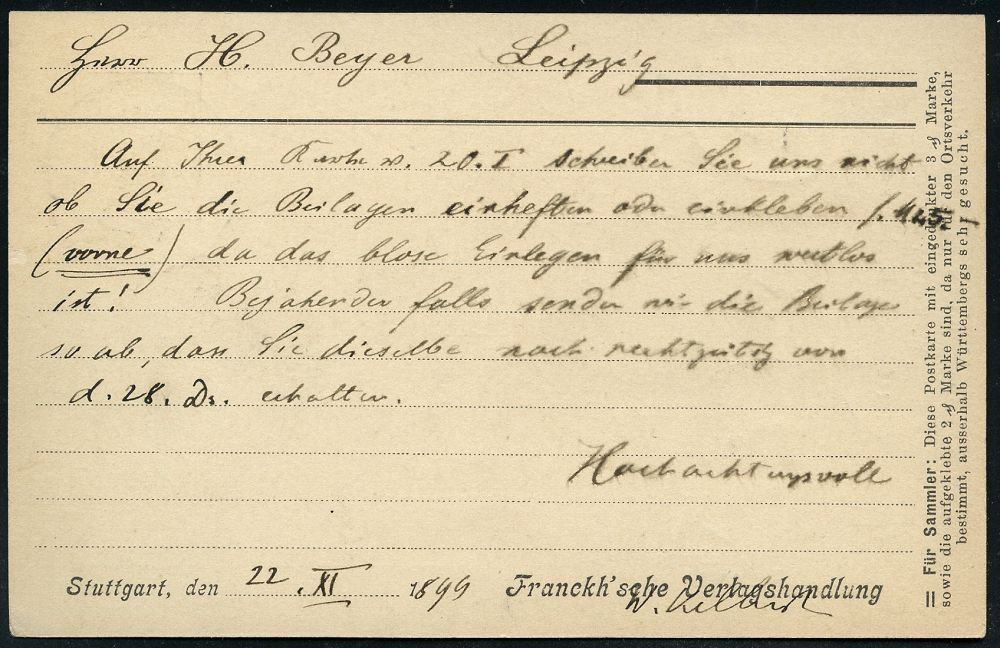 Herr H. Beyer Leipzig
Auf Ihrer Karte v. 20. schreiben Sie uns nicht
ob Sie die Beilagen einheften oder einkleben
(vorne) da das blose Einlegen für uns wertlos
ist! Bejahenden falls senden wir die Beilage
so ab, dass Sie dieselbe noch rechtzeitig vor
d. 28. Ds. erhalten.
Hochachtungsvoll
Stuttgart, den 22. XI 1899 Franckh'sche Verlagshandlung
= Für Sammler: Diese Postkarte mit eingedruckter 3 ₰ Marke,
sowie die aufgeklebte 2 ₰ Marke sind, da nur für den Ortsverkehr
bestimmt, ausserhalb Württembergs sehr gesucht.